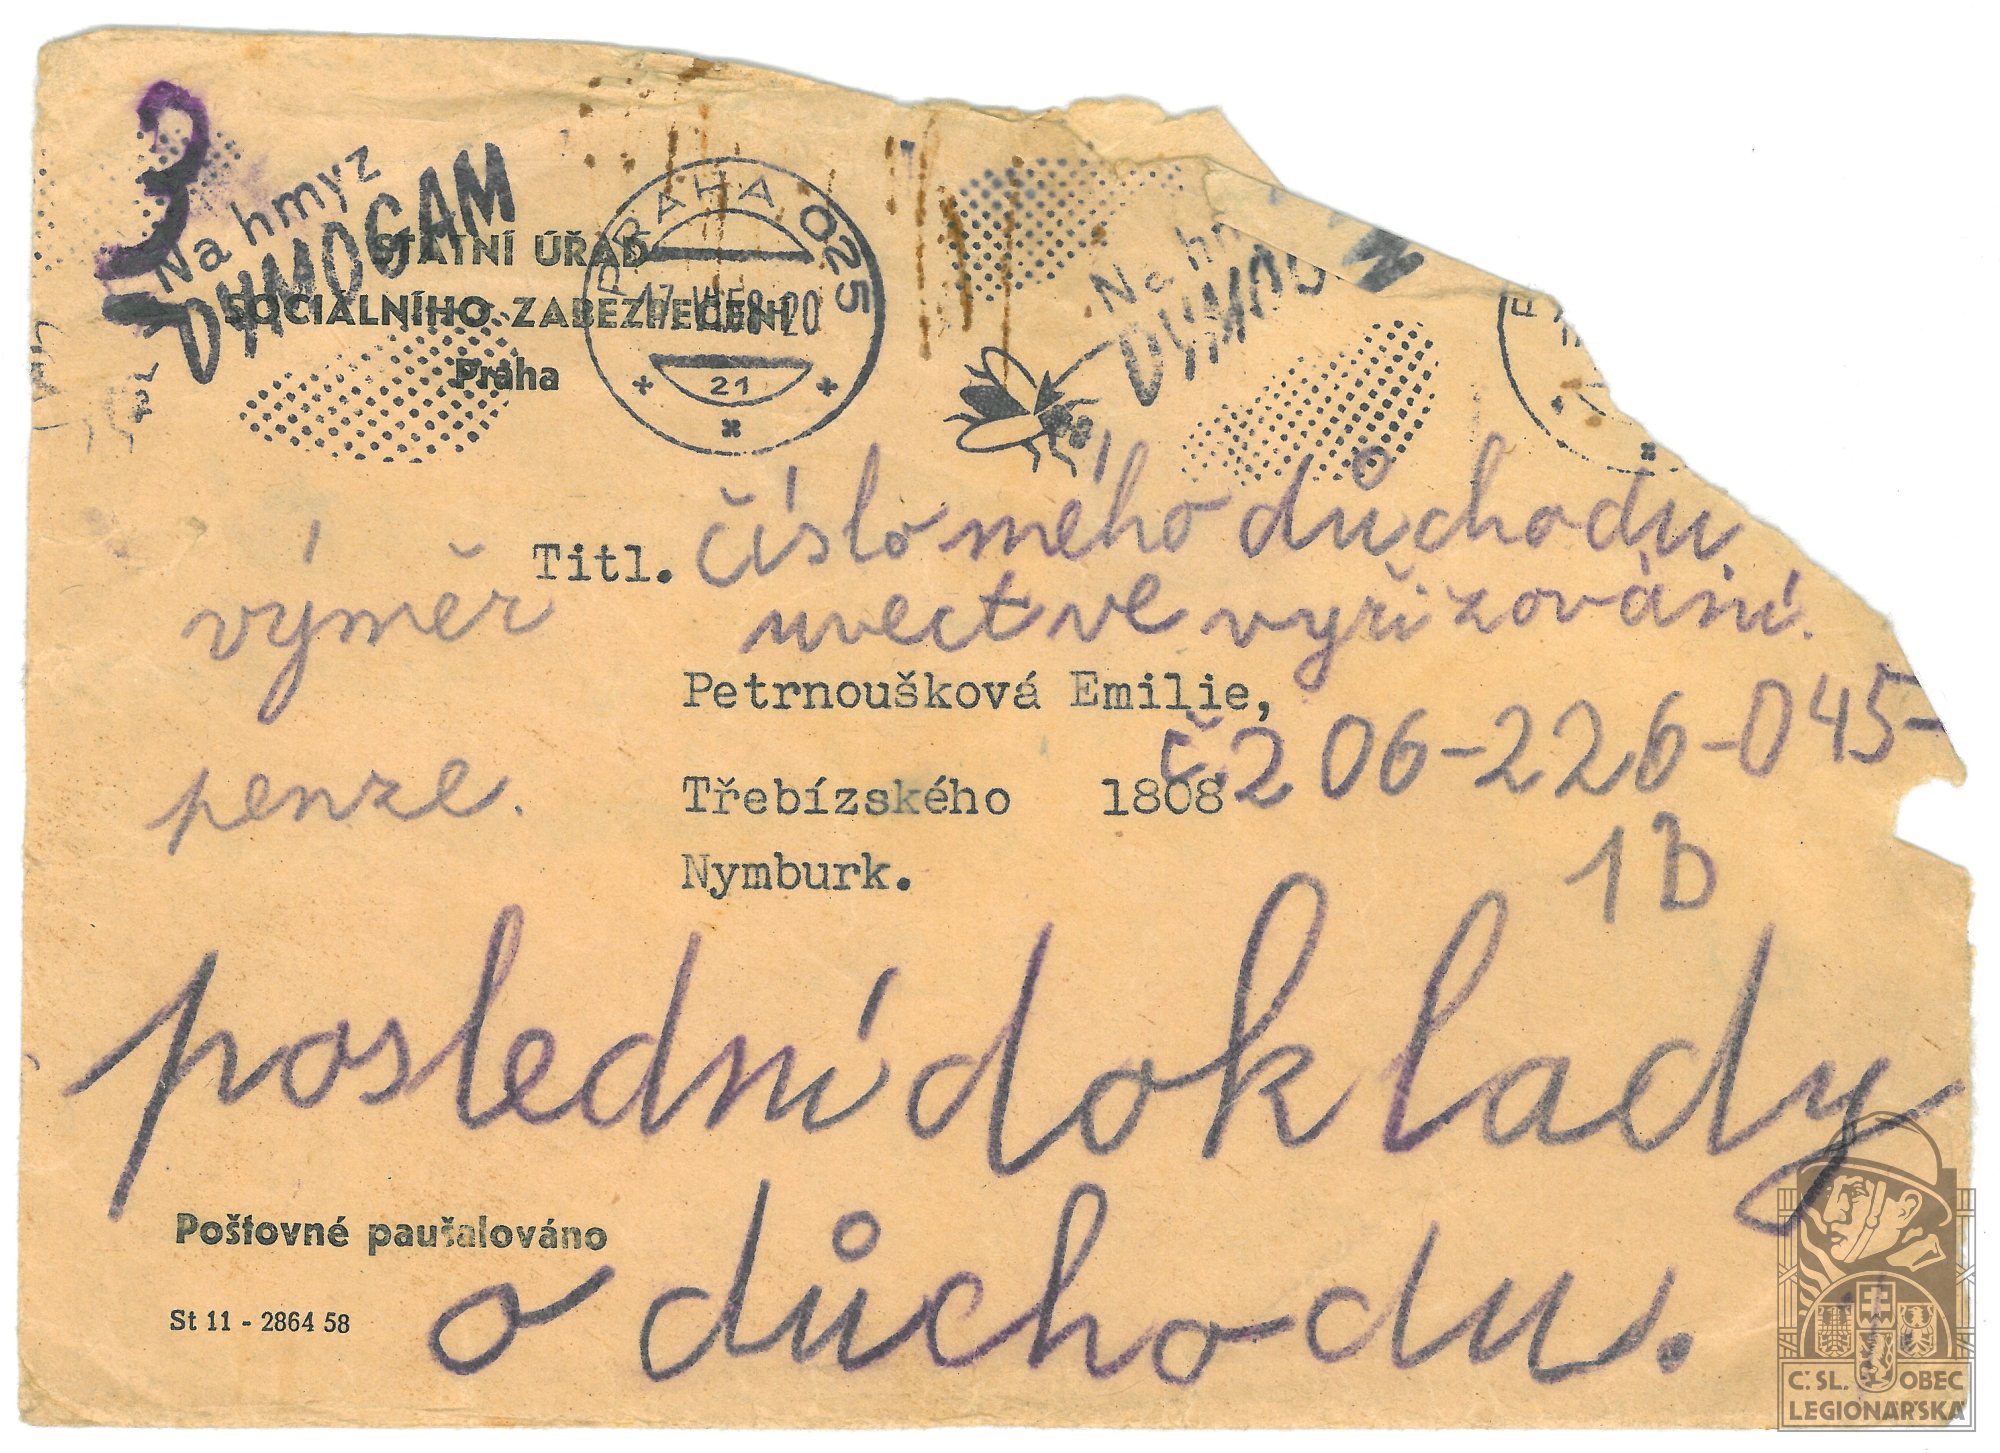 3
Na hmyz
DYMOGAM
STÁTNÍ ÚŘAD
SOCIÁLNÍHO ZABEZPEČENÍ
Praha
PRAHA 025
58-20
21
Na
číslo mého důchodu
Titl.
uvect ve vyřizování.
výměr
penze.
Petrnoušková Emilie,
č. 206-226-045-
Třebízského 1808
1b
Nymburk.
poslední doklady
Poštovné paušalováno
o důchodu.
St 11 - 2864 58
Č. SL. OBEC
LEGIONÁŘSKÁ